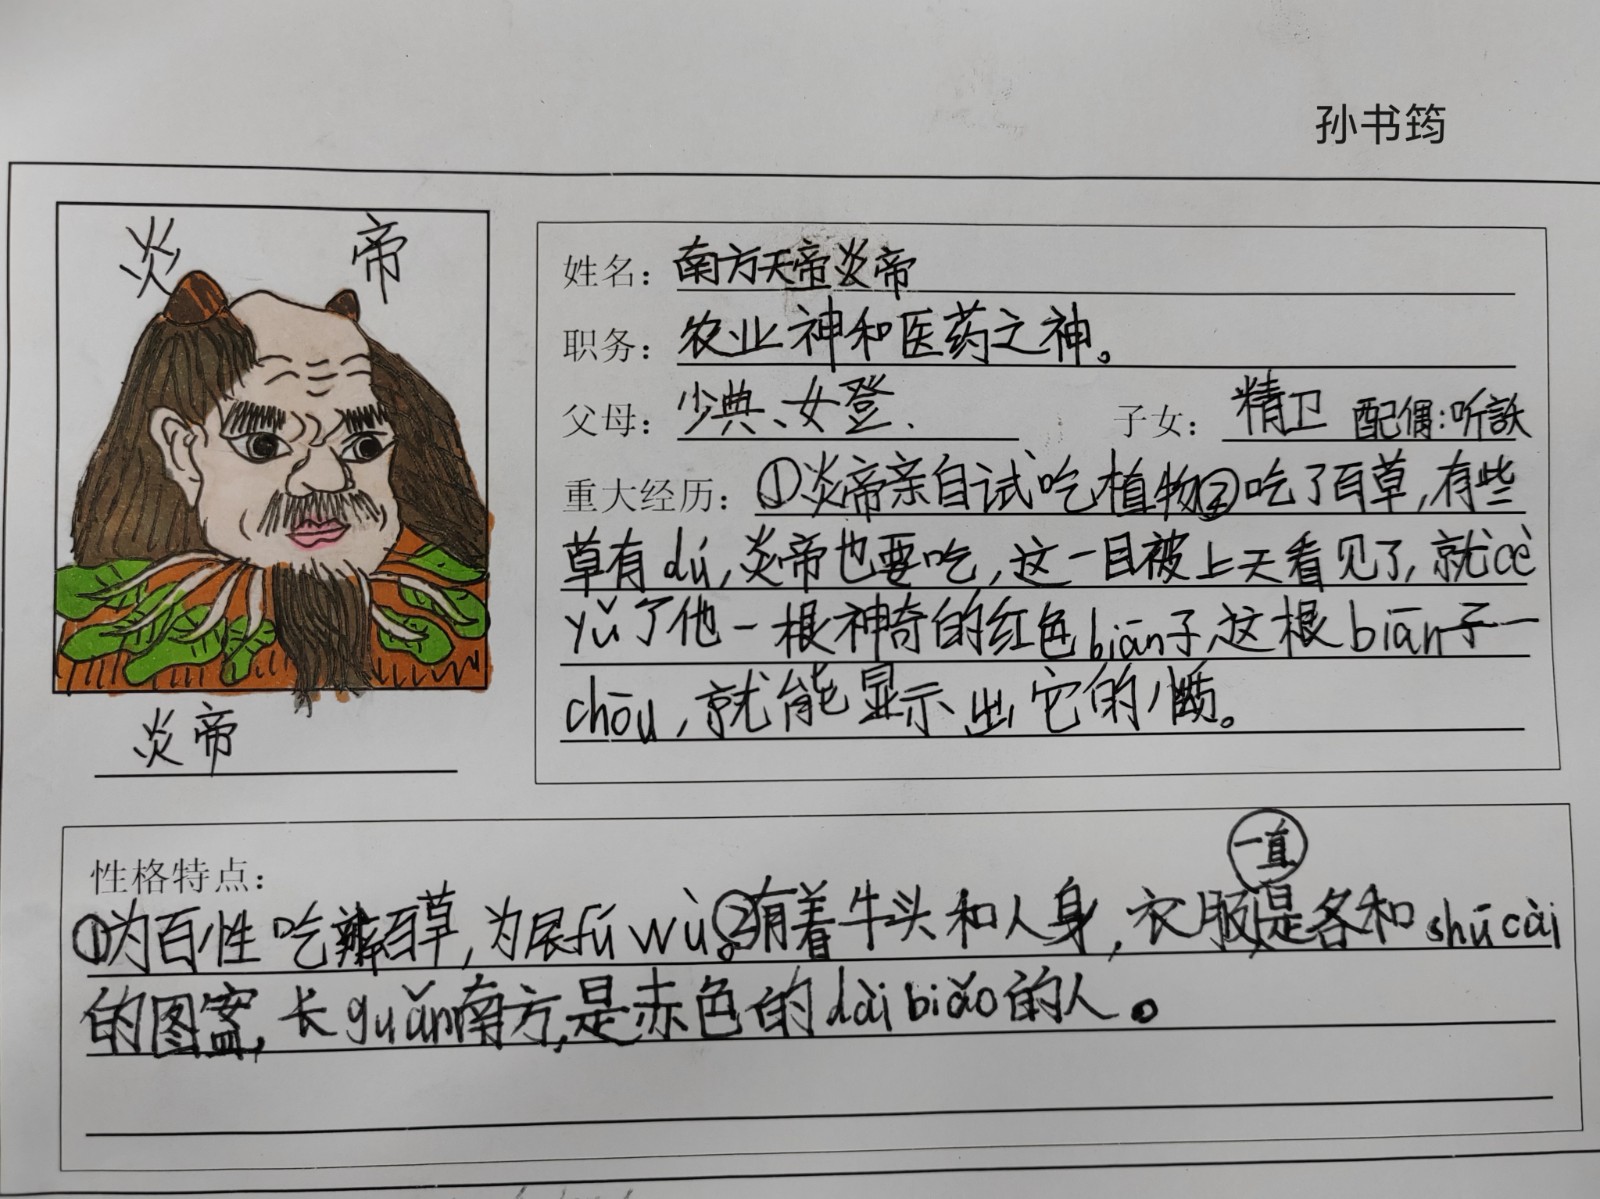 孙书筠
炎 帝
炎帝
姓名：南方天帝炎帝
职务：农业神和医药之神。
父母：少典、女登、 子女：精卫 配偶：听訞
重大经历：①炎帝亲自试吃植物②吃了百草，有些
草有dú，炎帝也要吃，这一目被上天看见了，就cì
yǔ了他一根神奇的红色biān子，这根biān子一
chōu，就能显示出它的
一直
性格特点：
①为百性吃百草，为fú wù。②有着牛头和人身，衣服是各和shū cài
的图案，长guǎn南方，是赤色的dài biǎo的人。